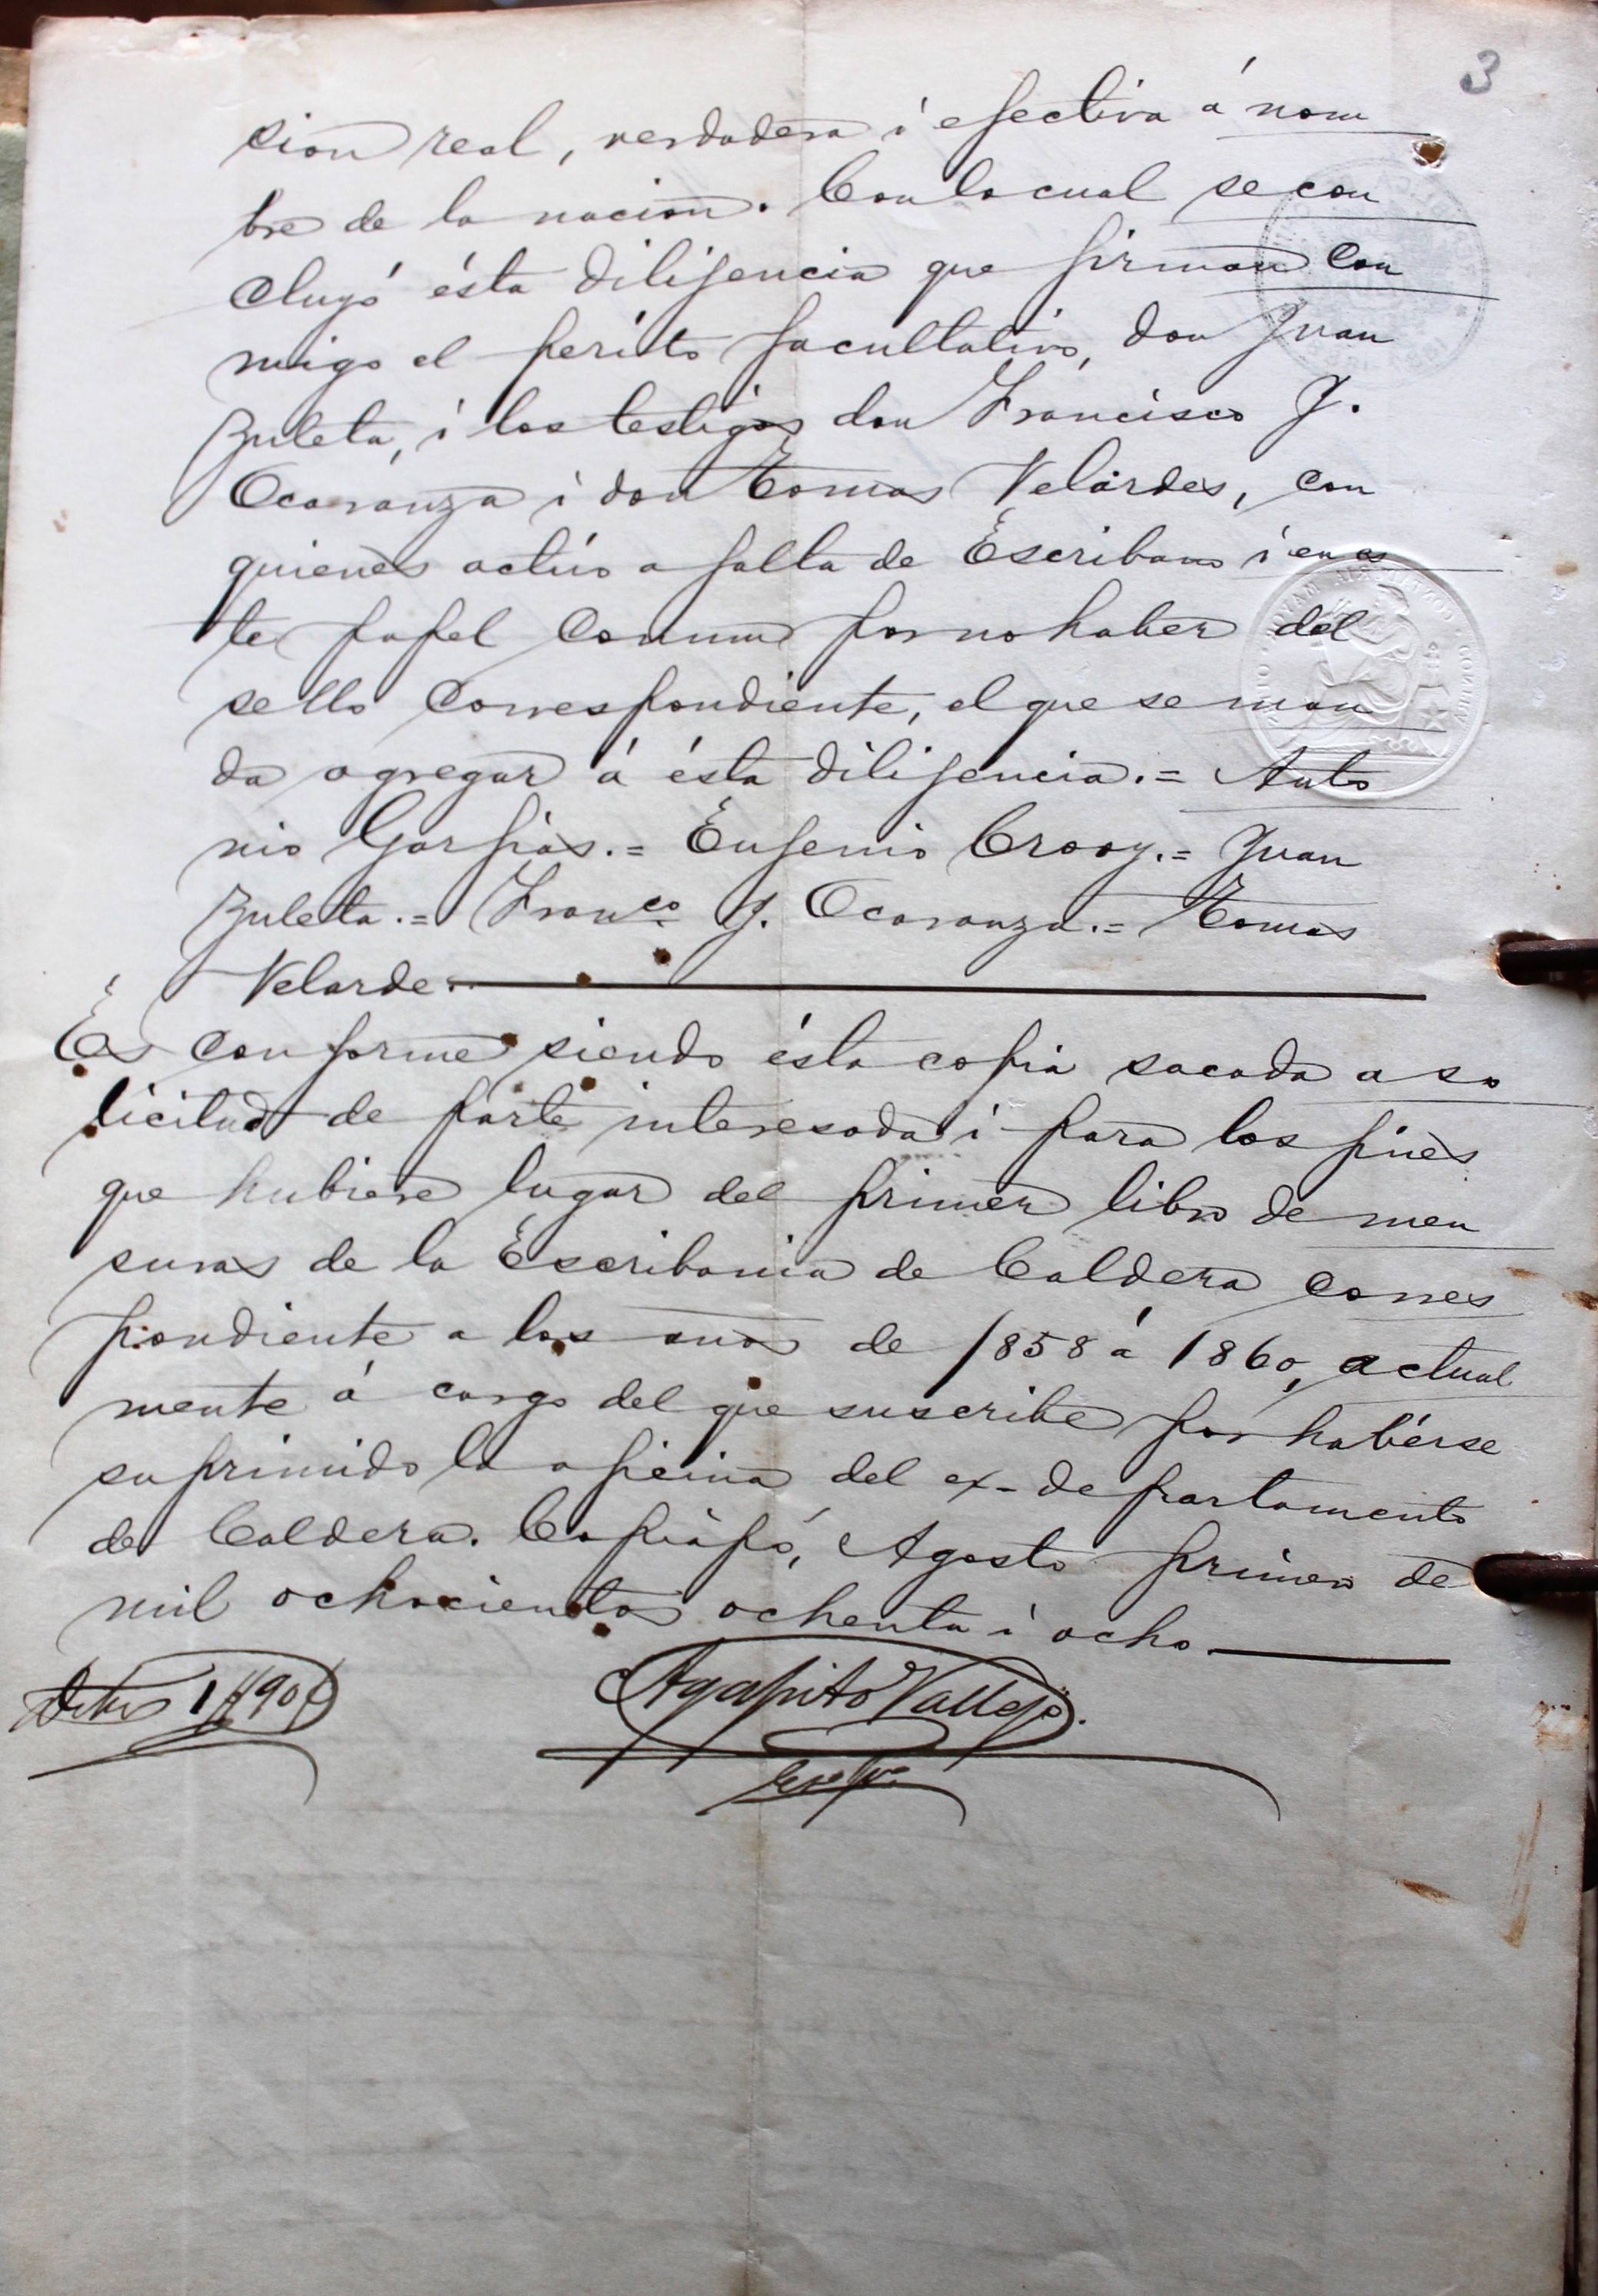 3
sion real, verdadera i efectiva á nom
bre de la nacion. Con lo cual se con
cluyó ésta dilijencia que firman con
migo el perito facultativo, don Juan
Zuleta, i los testigos don Francisco J.
Ocaranza i don Tomas Velardes, con
quienes actúo a falta de Escribano i en es
te papel comun por no haber del
sello correspondiente, el que se man
da agregar á ésta dilijencia.= Anto
nio Garfias.= Eujenio Crooy.= Juan
Zuleta.= Franco J. Ocaranza.= Tomas
Velarde.
Es conforme siendo ésta copia sacada a so
licitud de parte interesada i para los fines
que hubiere lugar del primer libro de men
suras de la Escribania de Caldera corres
pondiente a los anos de 1858 á 1860, actual
mente á cargo del que suscribe por habérse
suprimido la oficina del ex-departamento
de Caldera. Copiapó, Agosto primero de
mil ochocientos ochenta i ocho
Agapito Vallejo.